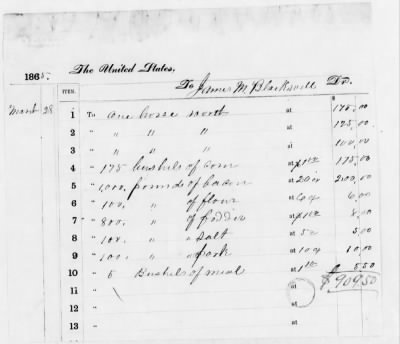 1865. The United States,
To James M. Blackwell Dr.
ITEM. $
March 28 1 To one horse worth at 175.00
2 " " " " at 175.00
3 " " " " at 150.00
4 " 175 bushels of corn at $1.00 175.00
5 " 1,000, pounds of bacon at 20 c 200.00
6 " 100, " of flour at 6 c 6.00
7 " 800, " of fodder at 8.00
8 " 100, " salt at 5 c 5.00
9 " 100, " pork at 10 c 10.00
10 " 5 Bushels of meal at 1.10 5.50
11 " at $909.50
12 " at
13 " at